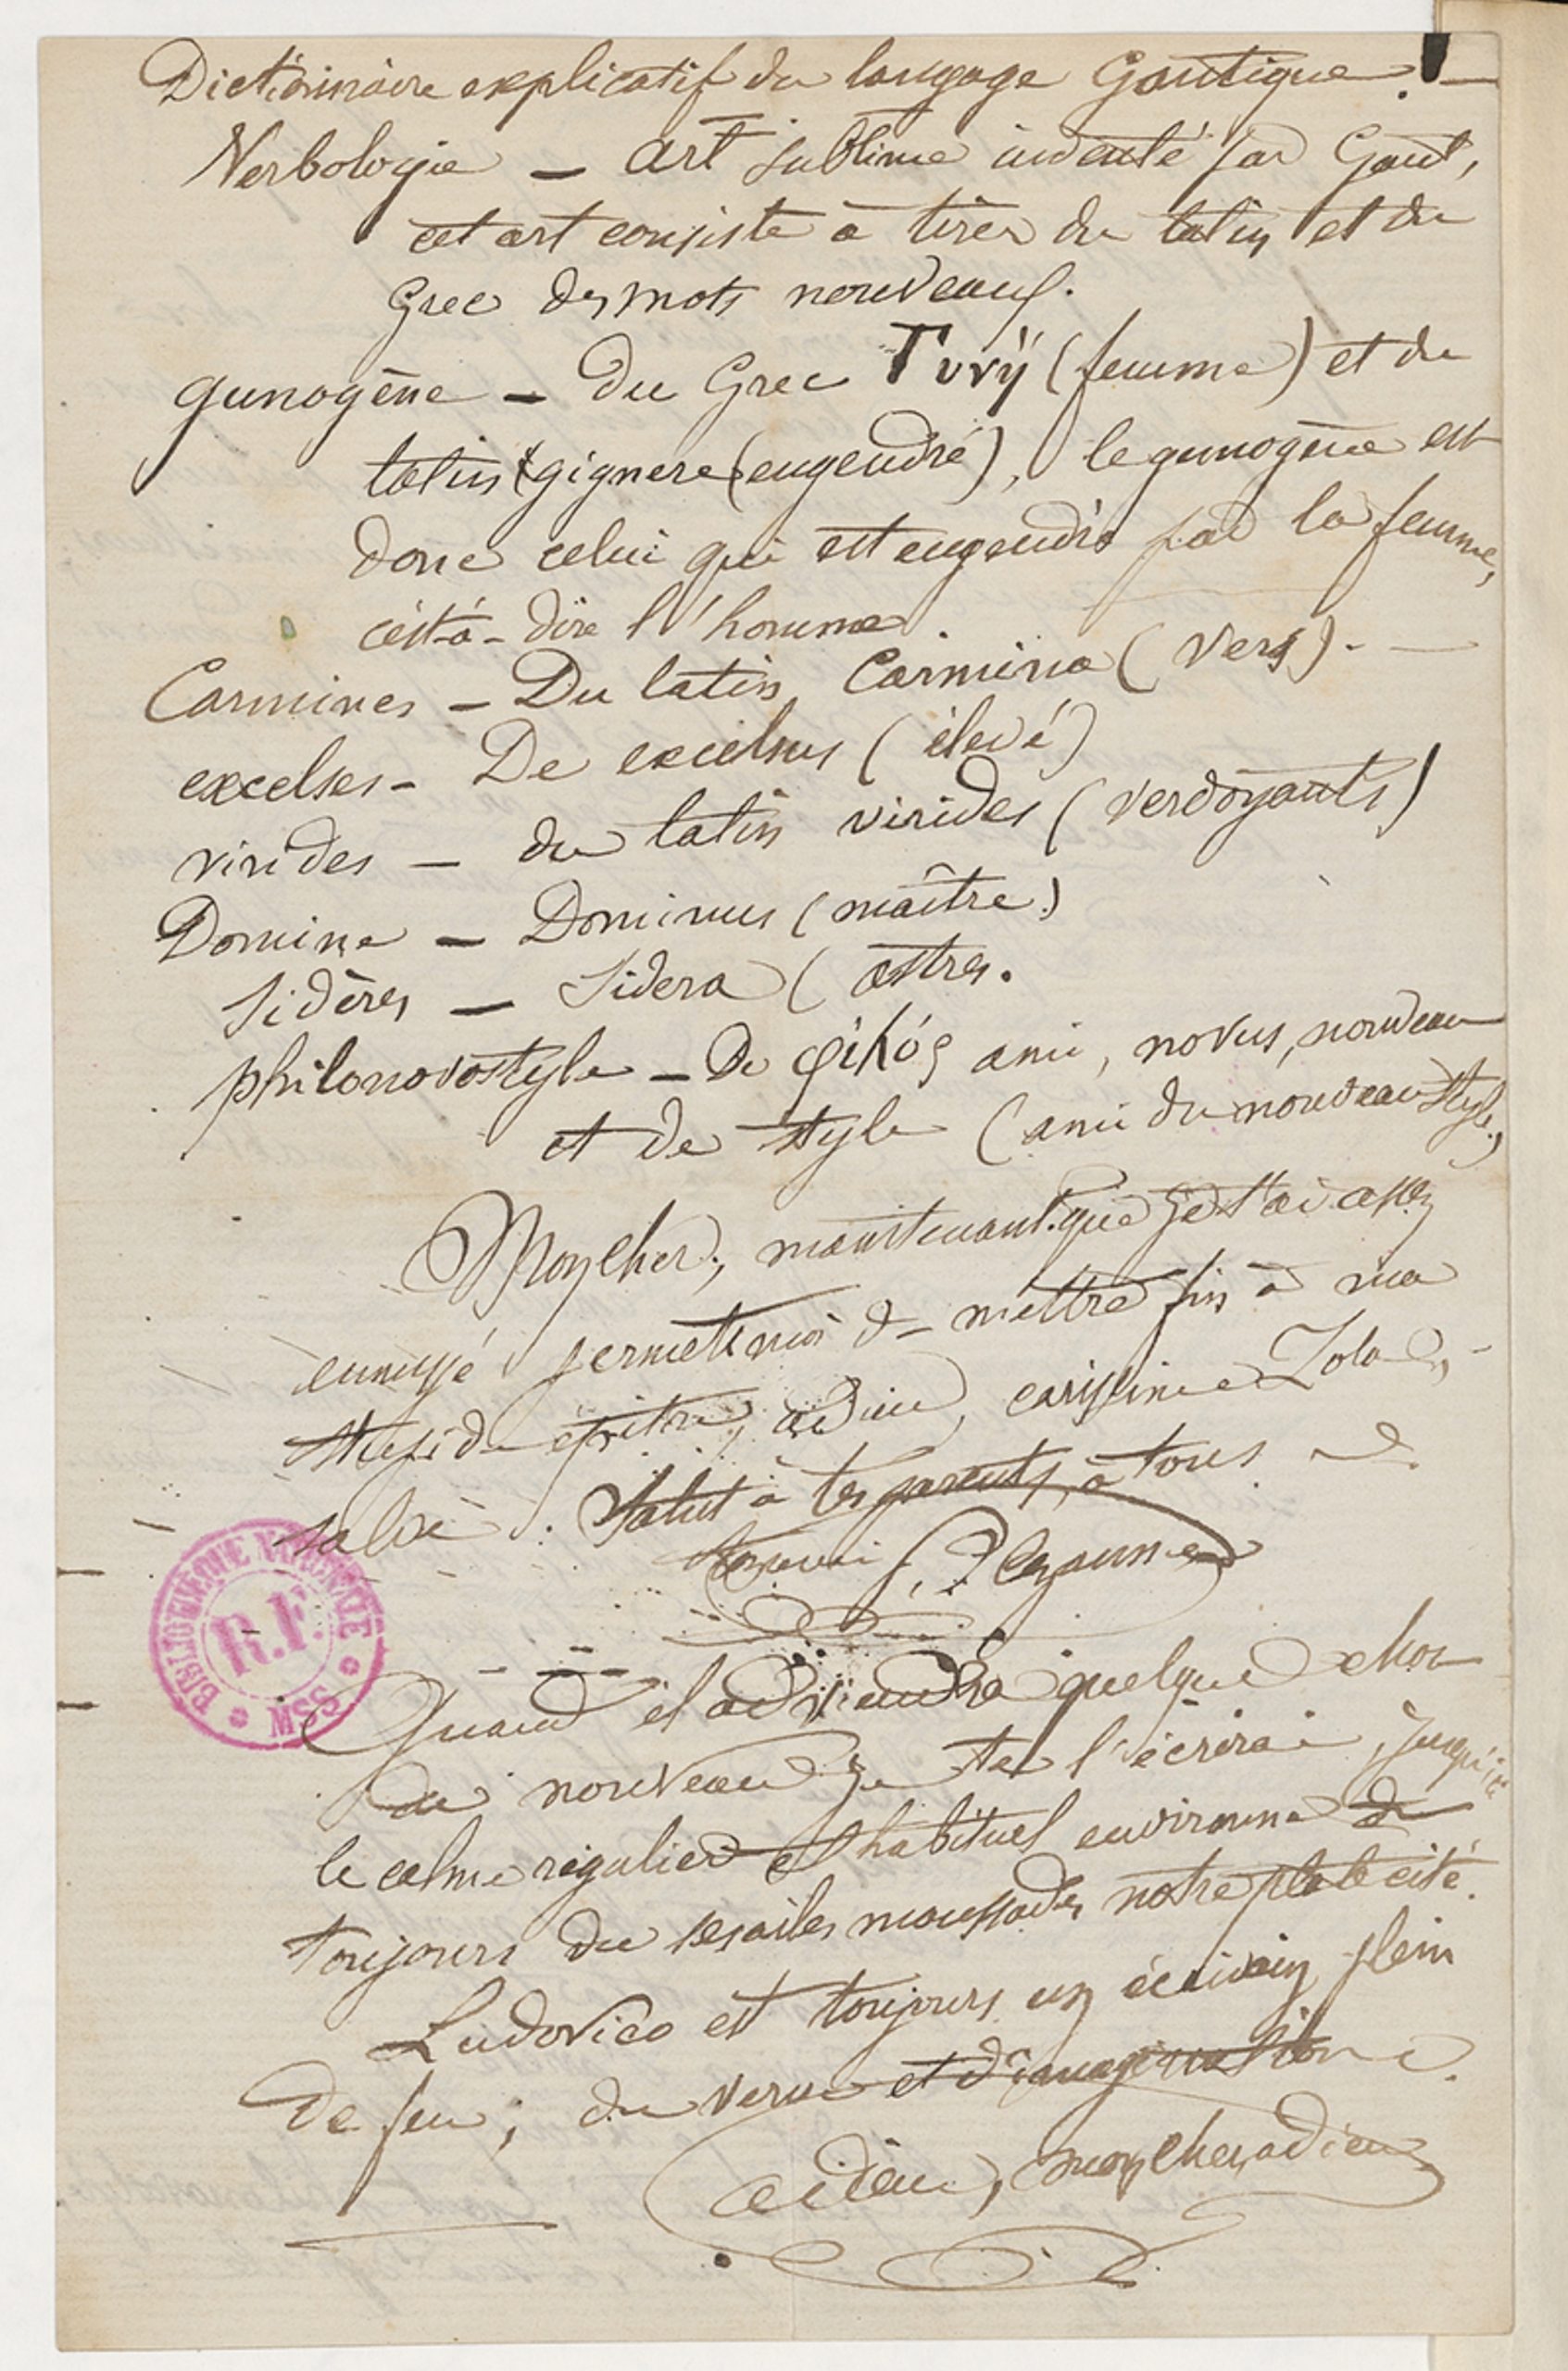 Dictionnaire explicatif du langage Gautique. —
Verbologie — art sublime inventé par Gaut,
cet art consiste à tirer du latin et du
Grec des mots nouveaux.
gunogène — Du Grec Γυνή (femme) et du
latin gignere (engendré), le gunogène est
donc celui qui est engendré par la femme,
c'est-à-dire l'homme.
Carmines — Du latin, Carmina (vers). —
excelses — De excelsus (élevé)
virides — du latin virides (verdoyants)
Domine — Dominus (maître.)
Sidères — Sidera (astres.
philonovostyle — De φιλός ami, novus, nouveau
et de style (ami du nouveau style,
Mon cher, maintenant que je t'ai assez
ennuyé permets moi de mettre fin à ma
stupide épitre, adieu, carissime Zola,
salve. Salut à tes parents, à tous
ton ami P. Cézanne
BIBLIOTHEQUE NATIONALE
R.F.
MSS
Quand il adviendra quelque chose
de nouveau je te l'écrirai, jusqu'ici
le calme régulier et habituel environne de
toujours de ses ailes maussades notre plate cité.
Ludovico est toujours un écrivain plein
de feu, de verve et d'imagination.
adieu, mon cher, adieu